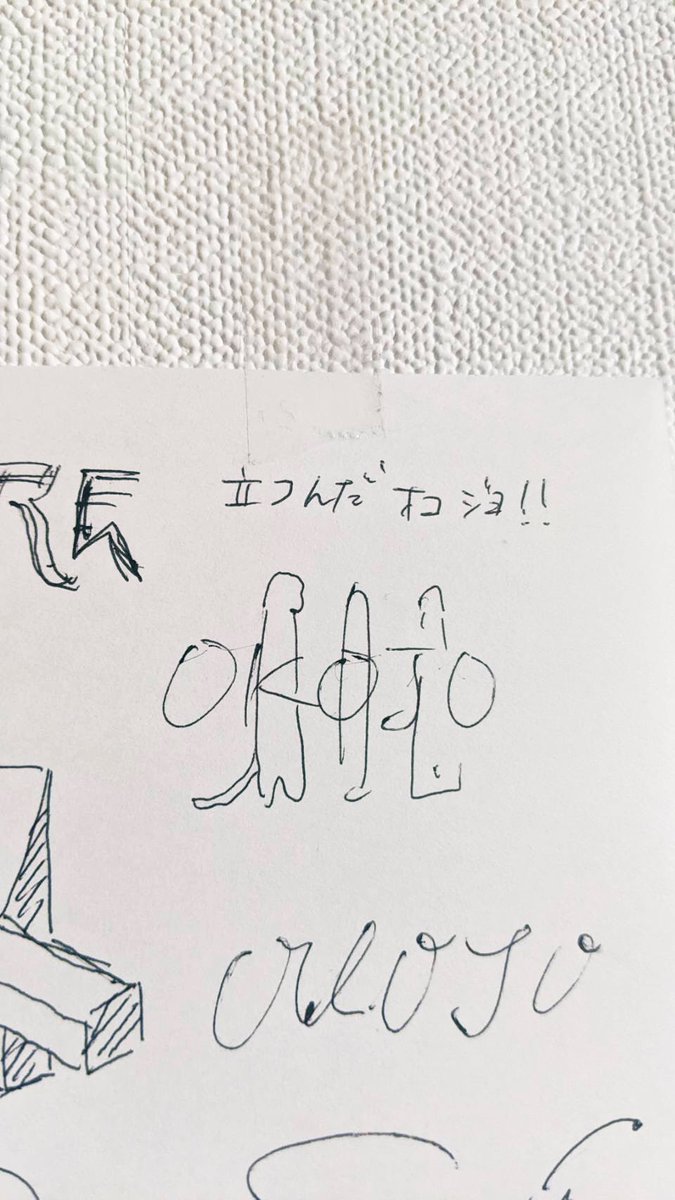 RE
立つんだ オコジョ!!
OKOJO
OKOJO